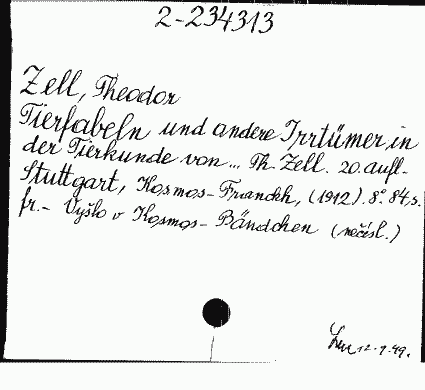 2-234313
Zell, Theodor
Tierfabeln und andere Irrtümer in
der Tierkunde von... Th. Zell. 20. aufl.-
Stuttgart, Kosmos-Franckh, (1912). 8° 84, s.
fr.- Vyšlo v Kosmos-Bändchen (nečísl.)
12-9.49.